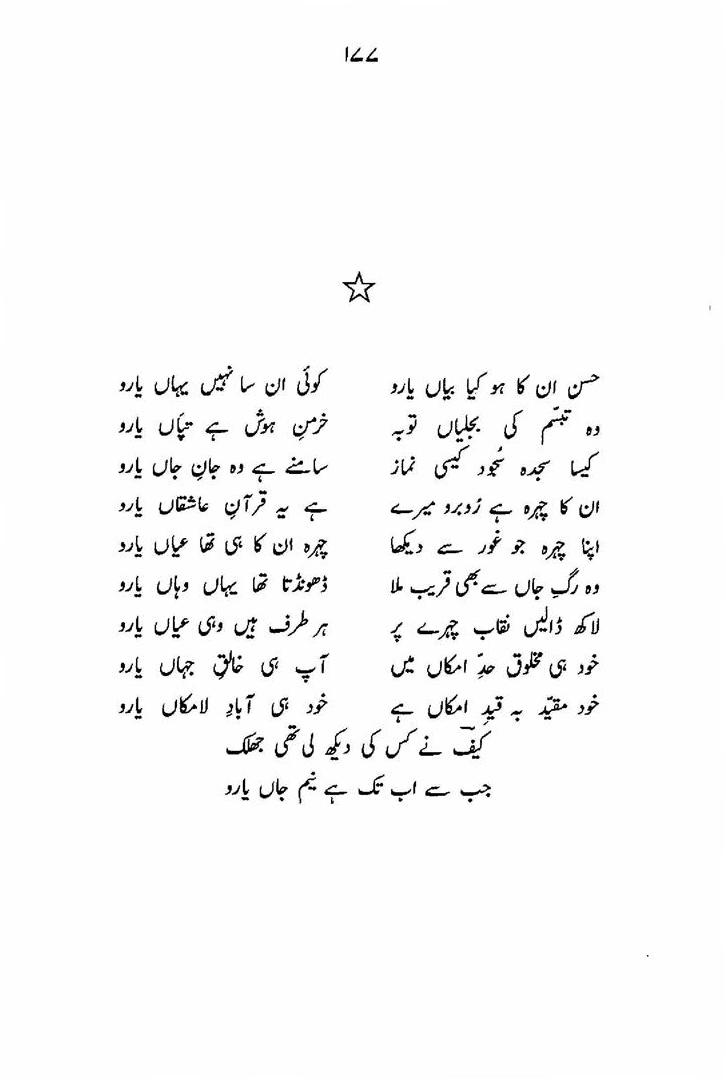 ۱۷۷
حسن ان کا ہو کیا بیاں یارو کوئی ان سا نہیں یہاں یارو
وہ تبسّم کی بجلیاں توبہ خرمنِ ہوش ہے تپّاں یارو
کیسا سجدہ سُجود کیسی نماز سامنے ہے وہ جانِ جاں یارو
ان کا چہرہ ہے رُوبرو میرے ہے یہ قرآنِ عاشقاں یارو
اپنا چہرہ جو غور سے دیکھا چہرہ ان کا ہی تھا عیاں یارو
وہ رگِ جاں سے بھی قریب ملا ڈھونڈتا تھا یہاں وہاں یارو
لاکھ ڈالیں نقاب چہرے پر ہر طرف ہیں وہی عیاں یارو
خود ہی مخلوق حدِّ امکاں میں آپ ہی خالقِ جہاں یارو
خود مقیّد بہ قیدِ امکاں ہے خود ہی آبادِ لامکاں یارو
کیفؔ نے کس کی دیکھ لی تھی جھلک
جب سے اب تک ہے نیم جاں یارو